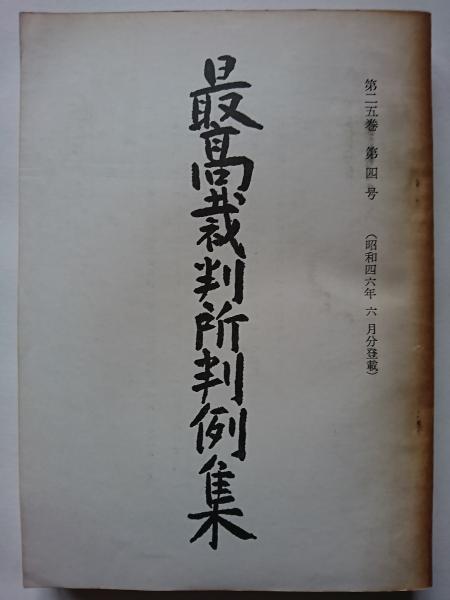 第二五巻 第四号 （昭和四六年 六 月分登載）
最高裁判所判例集